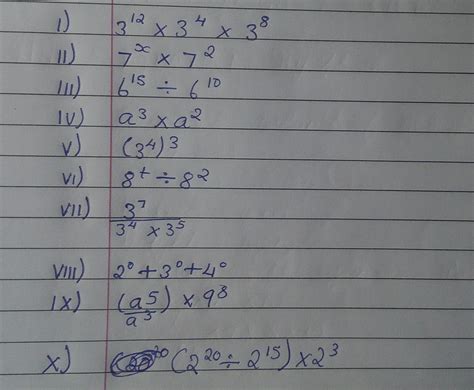 I) 3¹² × 3⁴ × 3⁸
II) 7ˣ × 7²
III) 6¹⁵ ÷ 6¹⁰
IV) a³ × a²
V) (3⁴)³
VI) 8ᵗ ÷ 8²
VII) 3⁷
3⁴ × 3⁵
VIII) 2⁰ + 3⁰ + 4⁰
IX) (a⁵) × a⁸
a³
X) (2²⁰ ÷ 2¹⁵) × 2³